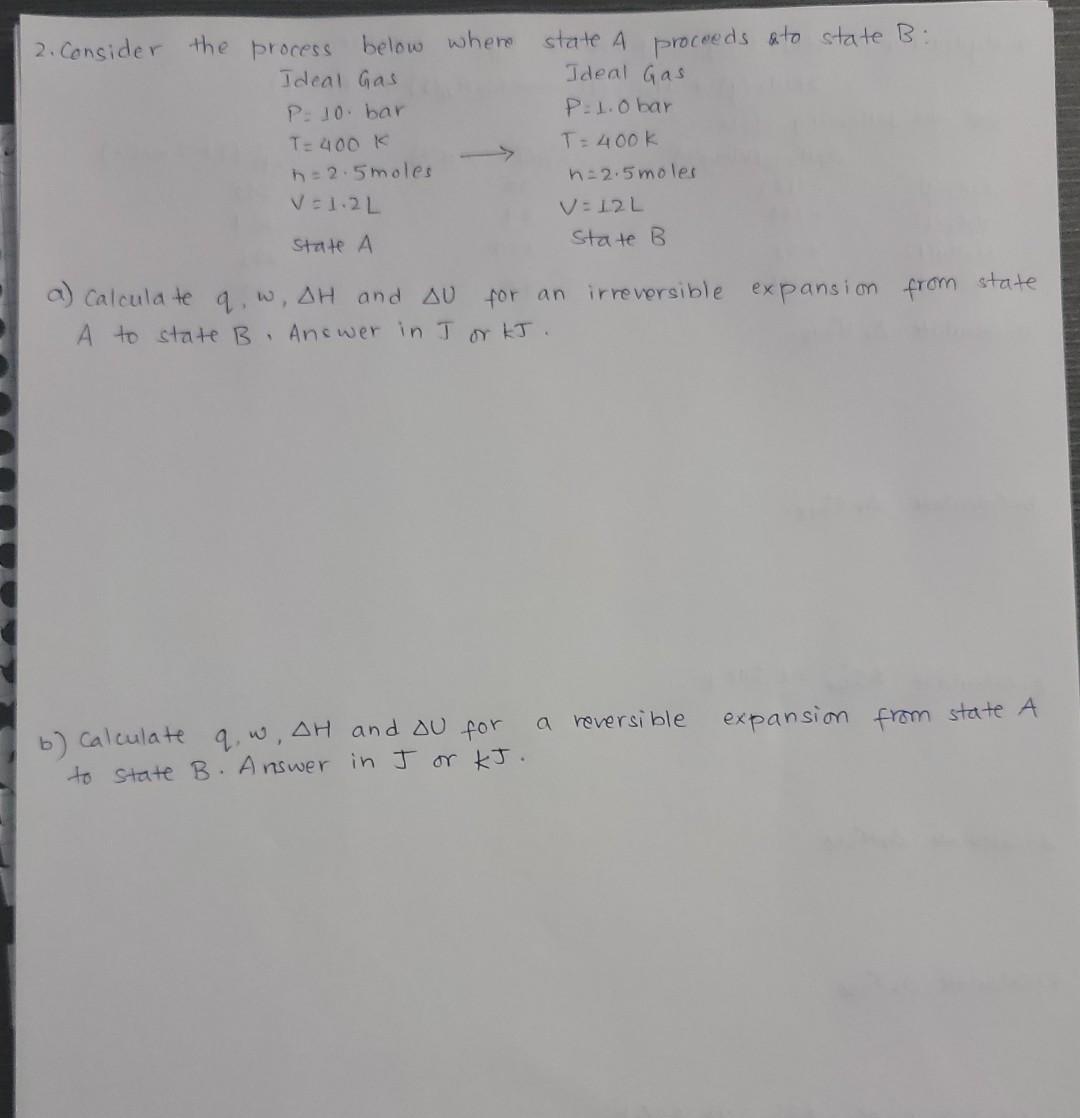 2. Consider the process below where state A proceeds to state B:
Ideal Gas Ideal Gas
P= 10. bar P=1.0 bar
T= 400 K → T= 400 K
n = 2.5 moles n=2.5 moles
V = 1.2 L V= 12 L
State A State B
a) Calculate q, w, ΔH and ΔU for an irreversible expansion from state
A to state B. Answer in J or kJ.
b) Calculate q, w, ΔH and ΔU for a reversible expansion from state A
to state B. Answer in J or kJ.